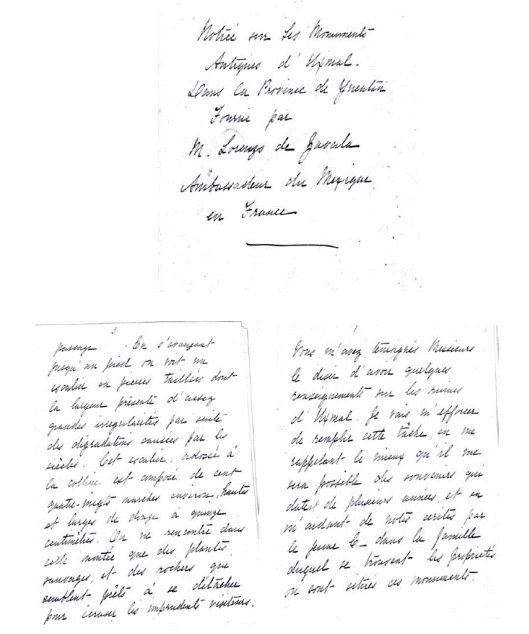 Notice sur les Monuments
Antiques d'Uxmal.
Dans la Province de Yucatan
Fournie par
M. Lorenzo de Zavala
Ambassadeur du Mexique
en France
3
passage. En s'avançant
jusqu'au pied, on voit un
escalier en pierres taillées dont
la largeur présente d'assez
grandes irrégularités par suite
des dégradations causées par les
siècles. Cet escalier, adossé à
la colline est composé de cent
quatre-vingts marches environ, hautes
et larges de douze à quinze
centimètres. On ne rencontre dans
cette montée que des plantes
sauvages, et des rochers que
semblent prêts à se détacher
pour écraser les imprudents visiteurs.
Vous m'avez témoigné Messieurs
le désir d'avoir quelques
renseignements sur les ruines
d'Uxmal. Je vais m'efforcer
de remplir cette tâche, en me
rappelant le mieux qu'il me
sera possible des souvenirs qui
datent de plusieurs années, et en
m'aidant de notes écrites par
le jeune G— dans la famille
duquel se trouvent les propriétés
où sont situées ces monuments.